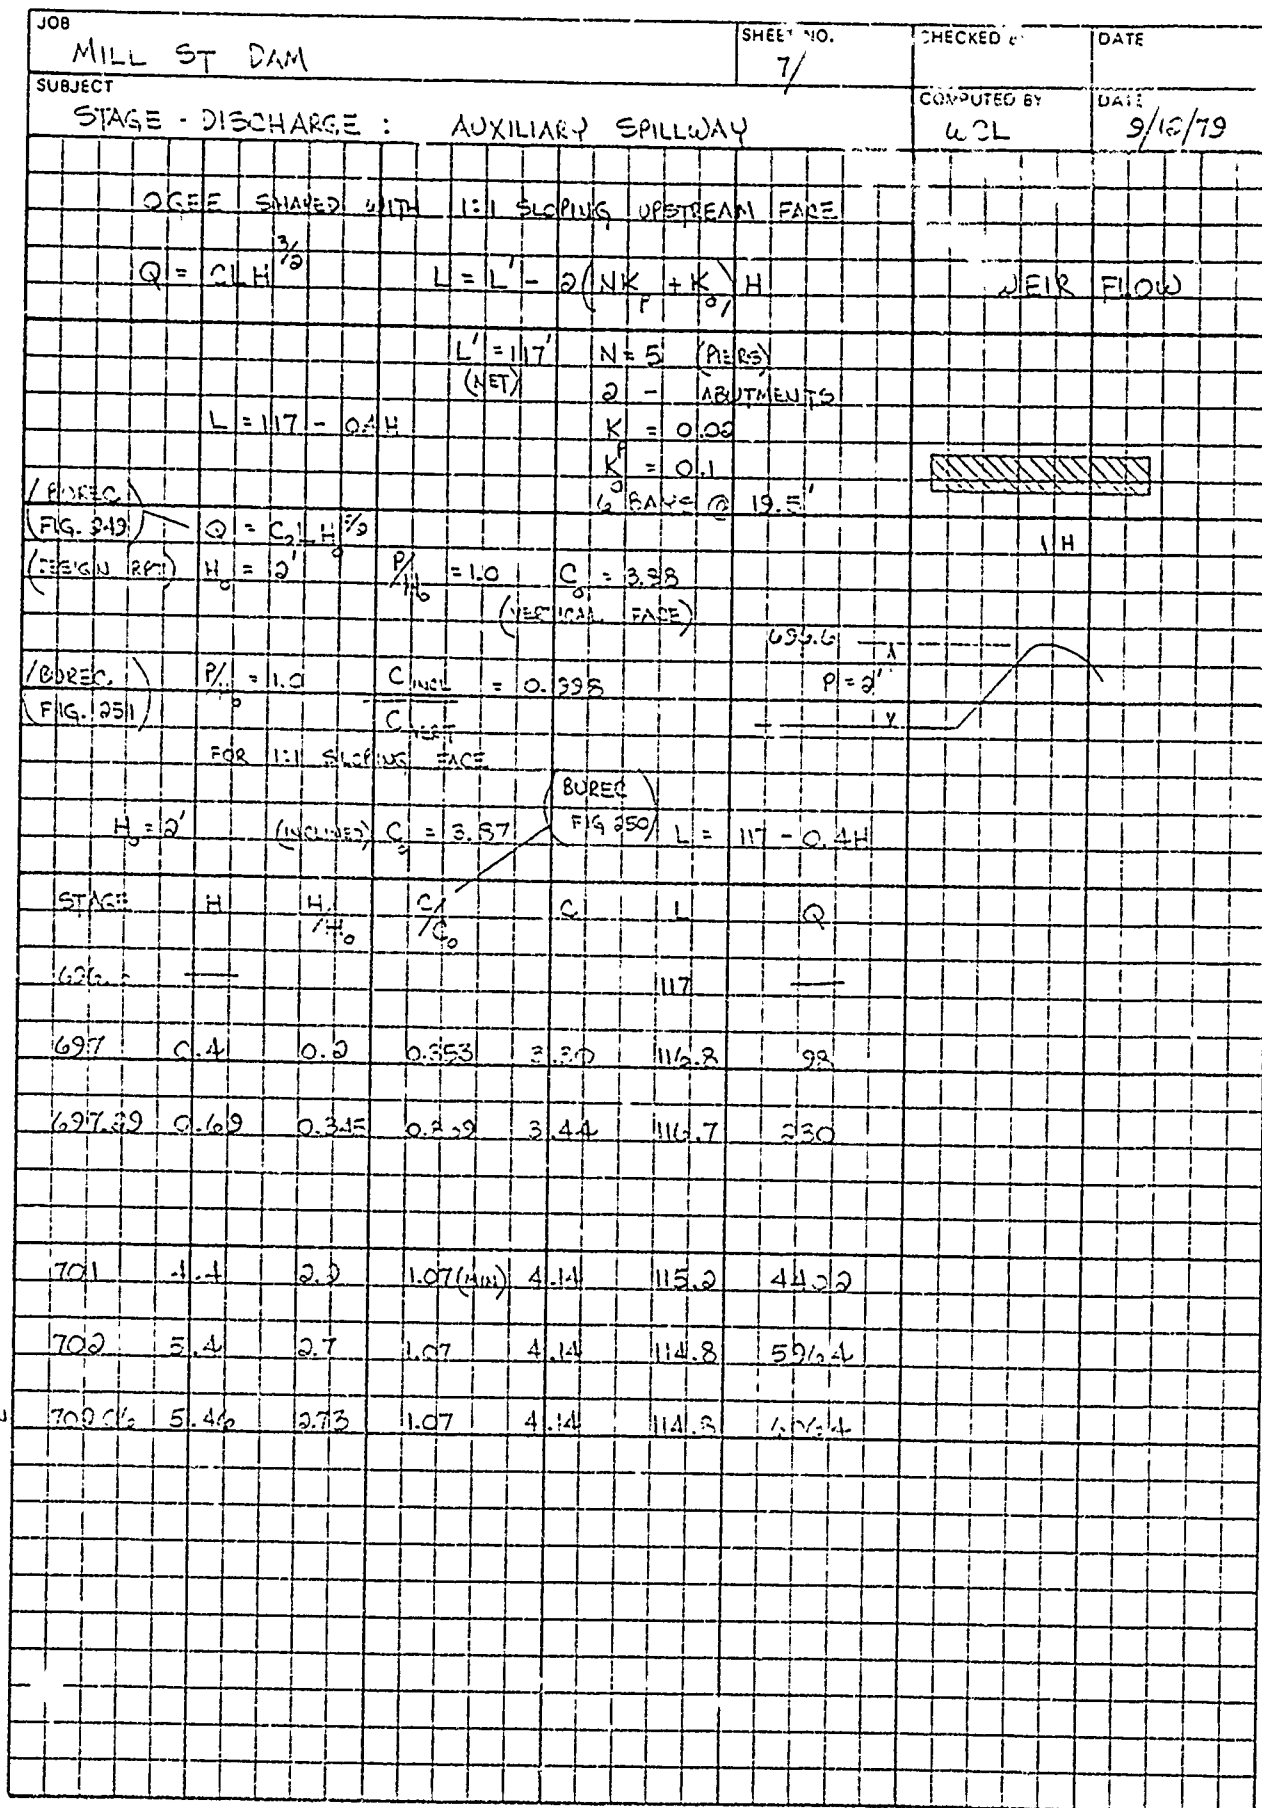 JOB
MILL ST DAM
SHEET NO.
7/
CHECKED
DATE
SUBJECT
STAGE - DISCHARGE : AUXILIARY SPILLWAY
COMPUTED BY
DATE
9/18/79
OGEE SHAPED WITH 1:1 SLOPING UPSTREAM FACE
Q = CLH^3/2 L = L' - 2(NKp + Ka)H WEIR FLOW
L' = 117' N = 5 (PIERS)
(NET) 2 - ABUTMENTS
L = 117 - 0.4H Kp = 0.02
Ka = 0.1
6 BAYS @ 19.5'
(BUREC
FIG. 249) Q = CoLHo^3/2
H
(DESIGN RPT) Ho = 2' P/Ho = 1.0 Co = 3.88
(VERTICAL FACE)
696.6
P = 2'
(BUREC. P/Ho = 1.0 C INCL = 0.998
FIG. 251) C VERT
FOR 1:1 SLOPING FACE
(BUREC
FIG 250)
Ho = 2' (INCLINED) Co = 3.87 L = 117 - 0.4H
STAGE H H/Ho C/Co C L Q
— 117 —
697 0.4 0.2 0.853 3.30 116.8 98
697.29 0.69 0.345 3.44 116.7 230
701 4.4 2.2 1.07 (MIN) 4.14 115.2 4402
702 5.4 2.7 1.07 4.14 114.8 5964
702.06 5.46 2.73 1.07 4.14 114.8